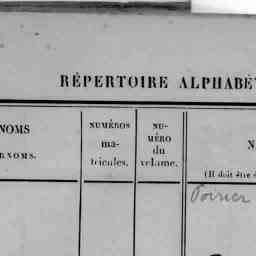 RÉPERTOIRE ALPHABÉT
NOMS
RNOMS.
NUMÉROS
ma-
tricules.
NU-
MÉRO
du
volume.
N
(Il doit être é
Poirier